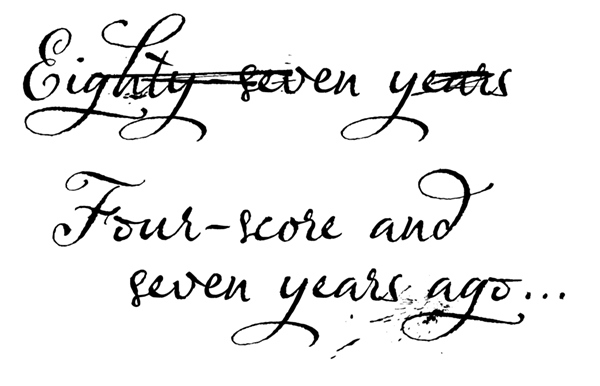 Eighty-seven years
Four-score and
seven years ago...